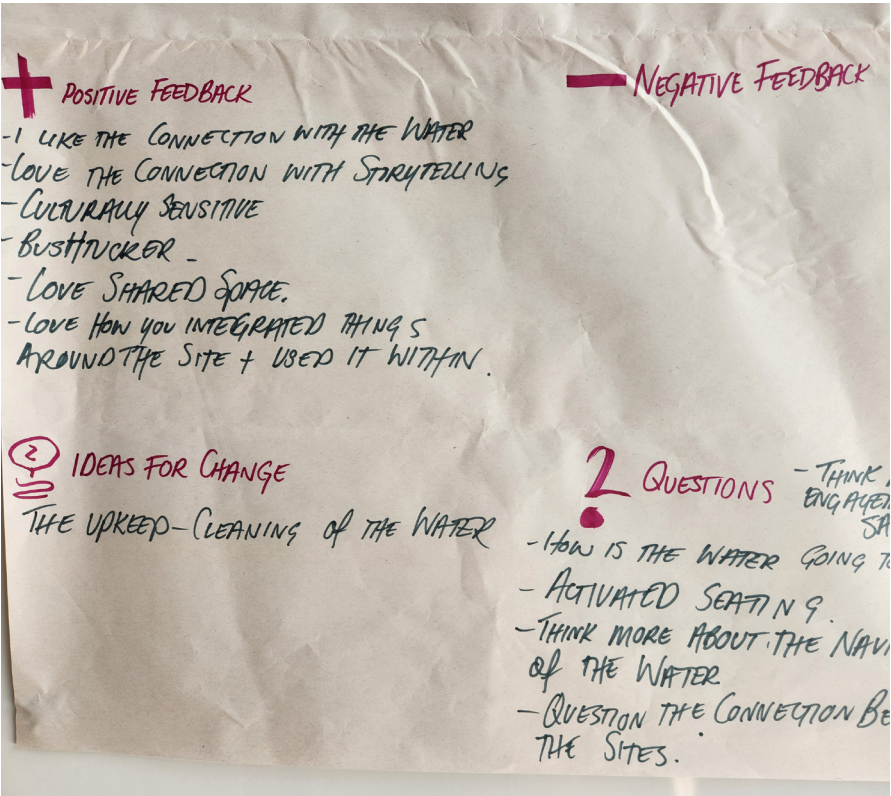 + POSITIVE FEEDBACK
- I LIKE THE CONNECTION WITH THE WATER
- LOVE THE CONNECTION WITH STORYTELLING
- CULTURALLY SENSITIVE
- BUSHTUCKER -
- LOVE SHARED SPACE.
- LOVE HOW YOU INTEGRATED THINGS
AROUND THE SITE + USED IT WITHIN.
- NEGATIVE FEEDBACK
2 IDEAS FOR CHANGE
THE UPKEEP - CLEANING OF THE WATER
? QUESTIONS
- THINK
- HOW IS THE WATER GOING
- ACTIVATED SEATING.
- THINK MORE ABOUT THE
OF THE WATER
- QUESTION THE CONNECTION
THE SITES.